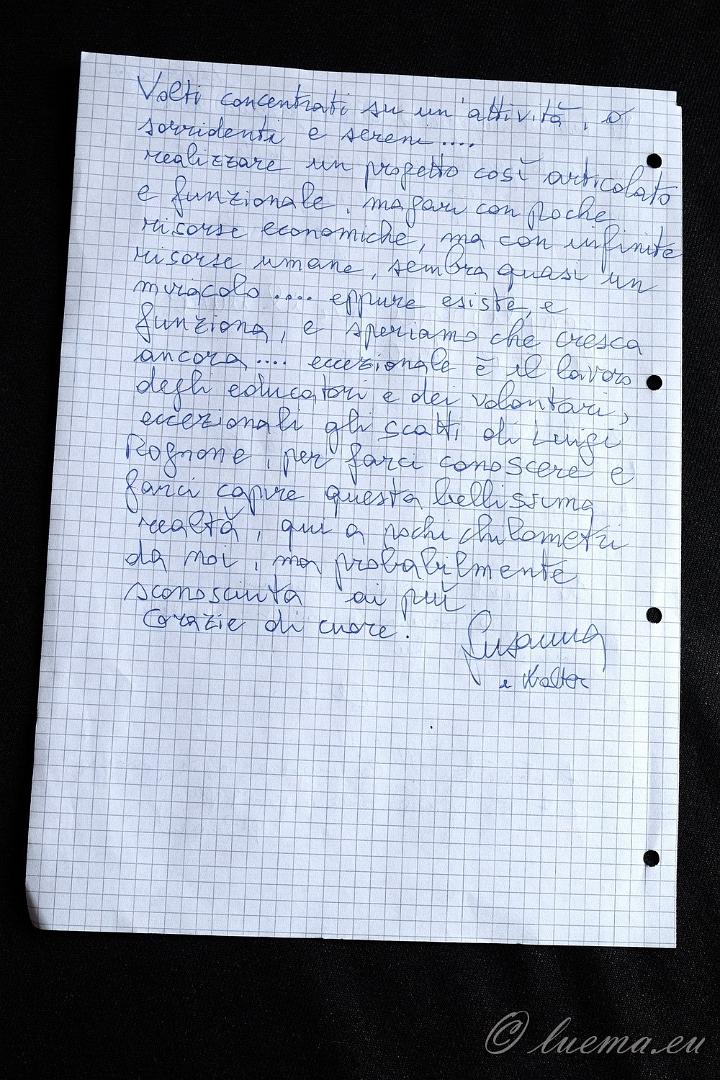 Volti concentrati su un'attività, o
sorridenti e sereni....
realizzare un progetto così articolato
e funzionale, magari con poche
risorse economiche, ma con infinite
risorse umane, sembra quasi un
miracolo.... eppure esiste, e
funziona, e speriamo che cresca
ancora.... eccezionale è il lavoro
degli educatori e dei volontari,
eccezionali gli scatti di Luigi
Rognone, per farci conoscere e
farci capire questa bellissima
realtà, qui a pochi chilometri
da noi, ma probabilmente
sconosciuta ai più
Grazie di cuore.
Susanna
e Walter
© luema.eu